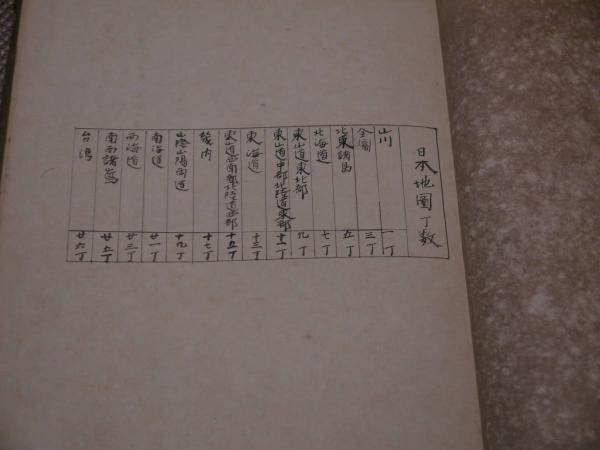 日本地圖丁数
山川 一丁
全圖 三丁
北東諸島 五丁
北海道 七丁
東山道東北部 九丁
東山道中部北陸道東部 十一丁
東海道 十三丁
東山道西南部北陸道西部 十五丁
畿内 十七丁
山陰山陽両道 十九丁
南海道 廿一丁
西海道 廿三丁
南西諸島 廿五丁
台湾 廿六丁